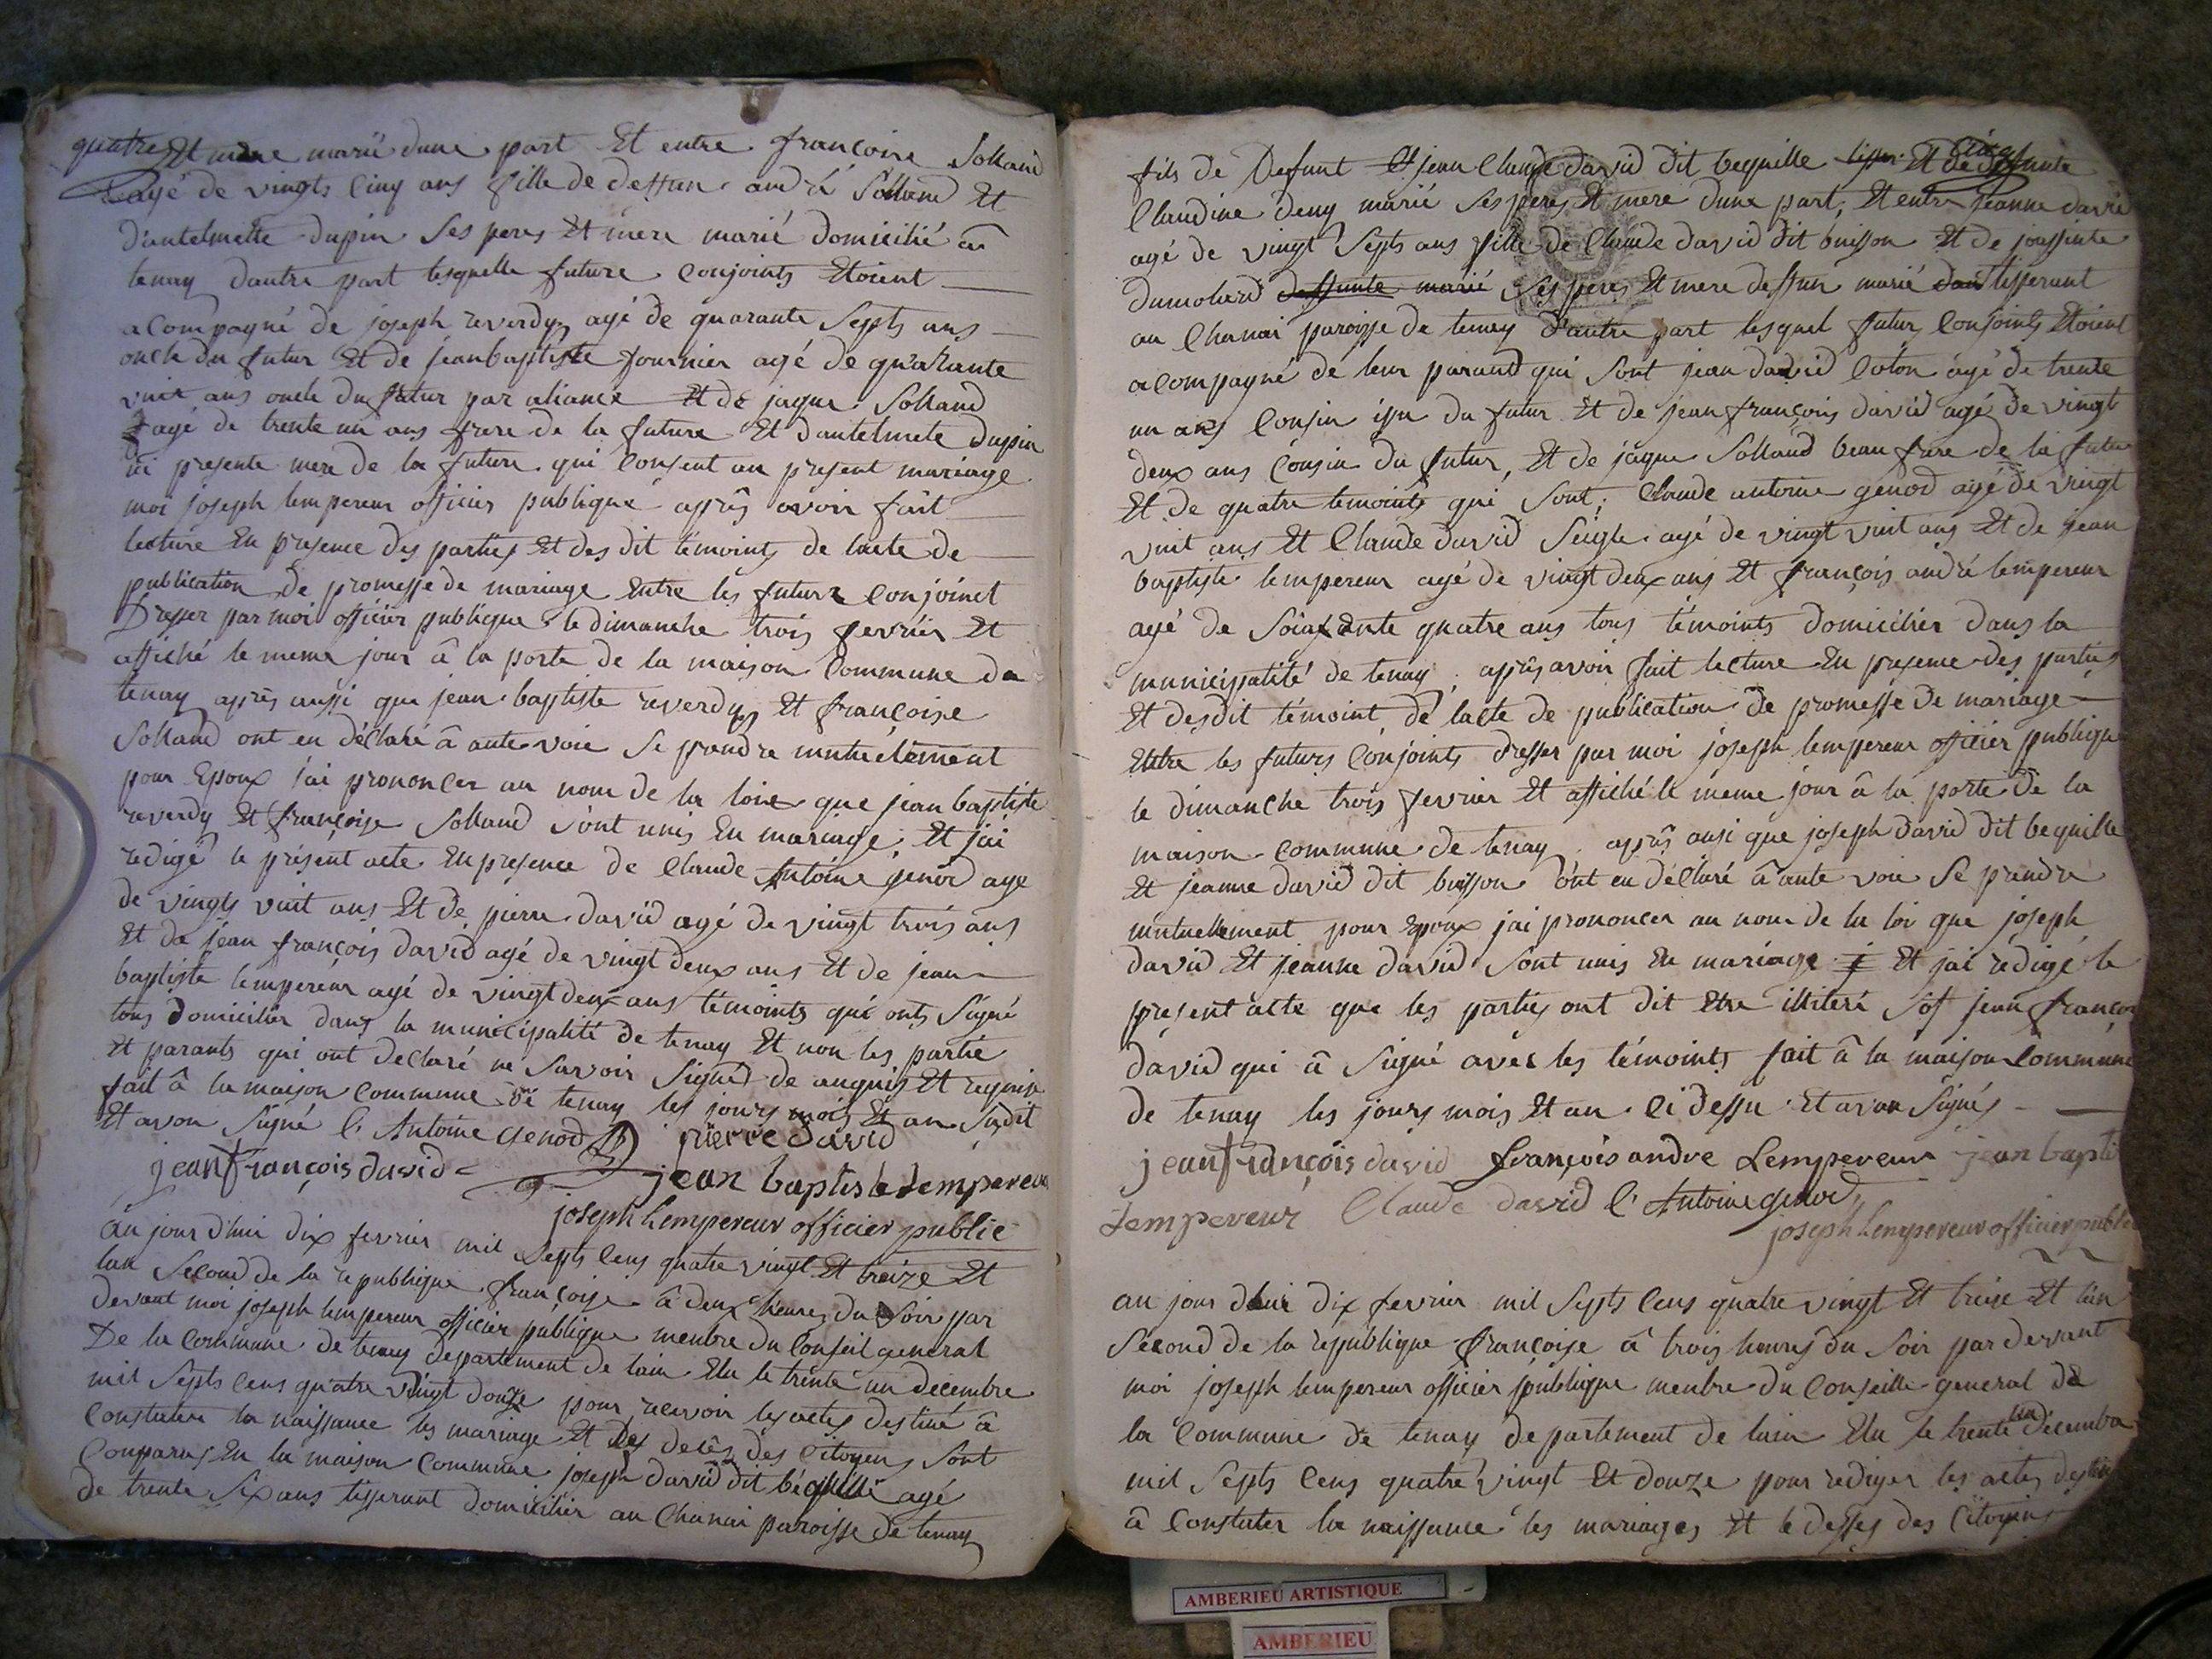 quatre Et mere marié dune part Et entre françoise Solland
agé de vingts Cinq ans fille de deffun andré Solland Et
d'antelmette dupin Ses peres Et mere marié domicilié â
tenay dautre part lesquelle future Conjoints Etoient
acompagné de joseph reverdy agé de quarante Septs ans
oncle du futur Et de jeanbaptiste fournier agé de quarante
vuit ans oncle du futur par aliance Et de jaque Solland
agé de trente un ans frere de la future Et dantelmete dupin
ici presente mere de la future qui Consent au present mariage
moi joseph lempereur officier publique aprês avoir fait
lecture En presence des parties Et des dit témoints de lacte de
publication de promesse de mariage Entre les futurs Conjoinct
Dresser par moi officier publique le dimanche trois fevrier Et
affiché le meme jour â la porte de la maison Commune de
tenay après aussi que jean baptiste reverdy Et françoise
Solland ont eu déclaré â aute voie Se prandre mutuelement
pour Epoux j'ai prononcer au nom de la loix que jean baptiste
reverdy Et françoise Solland sont unis En mariage Et jai
redigé le présent acte En presence de Claude Antoine genod age
de vingts vuit ans Et de pierre david agé de vingt trois ans
Et de jean françois david agé de vingt deux ans Et de jean
baptiste lempereur agé de vingt deux ans témoints qui onts Signé
tous domicilier dans la municipalité de tenay Et non les partie
Et parants qui ont déclaré ne Savoir Signér de anquis Et requise
fait â la maison Commune de tenay les jours mois Et an Susdit
Et avon Signé C. Antoine Genod pierre david
jeanfrançois david jean baptiste Lempereur
joseph Lempereur officier public
au jour d'hui dix fevrier mil Septs Cens quatre vingt Et treize Et
lan Second de la republique françoise â deux heures du Soir par
devant moi joseph lempereur officier publique menbre du Conseil general
De la Commune de tenay departement de lain Elu le trente un decembre
mil Septs Cens quatre vingt douze pour recevoir les actes destiné â
Constater la naissance les mariage Et des decês des Citoyens Sont
Comparus En la maison Commune joseph david dit béquille agé
de trente Six ans tisserant domicilier au Chanai paroisse de tenay
fils de Defunt Et jean Claude david dit bequille Et de deffunte
Claudine deny marié Ses peres Et mere dune part, Et entre jeanne david
agé de vingt Septs ans fille de Claude david dit buisson Et de joussinte
dumolard deffunte marié Ses peres Et mere deffun marié tisserant
au Chanai paroisse de tenay d'autre part lesquel futur Conjoints Etoient
acompagné de leur parand qui Sont jean david Coton agé de trente
un ans Cousin isu du futur Et de jean françois david agé de vingt
deux ans Cousin du futur, Et de jaque Solland beau frere de la future
Et de quatre temoints qui Sont, Claude antoine genod agé de vingt
vuit ans Et Claude david Seigle agé de vingt vuit ans Et de jean
baptiste lempereur agé de vingt deux ans Et françois andré lempereur
agé de Soixante quatre ans tous témoints domicilier dans la
municipalité de tenay, aprês avoir fait lecture En presence des parties
Et desdit témoint de lacte de publication de promesse de mariage
Entre les futurs Conjoints dresser par moi joseph lempereur officier publique
le dimanche trois fevrier Et affiché le même jour â la porte de la
maison Commune de tenay aprês ausi que joseph david dit bequille
Et jeanne david dit buisson ont eu déclaré â aute voie Se prandre
mutuellement pour Epoux jai prononcer au nom de la loi que joseph
david Et jeanne david Sont unis En mariage Et jai rédigé le
present acte que les parties ont dit Etre illiteré Sôf jean françois
david qui â Signé avec les témoints fait â la maison Commune
de tenay les jours mois Et an Ci dessu Et avon Signés
jeanfrançois david françois andre Lempereur jean bapti
Lempereur Claude david C. Antoine genod
joseph Lempereur officier public
au jour dhui dix fevrier mil Septs Cens quatre vingt Et treize Et lan
Second de la republique françoise â trois heures du Soir par devant
moi joseph lempereur officier publique menbre du Conseille general de
la Commune de tenay departement de lain Elu le trente un decembre
mil Septs Cens quatre vingt Et douze pour rediger les actes destiné
â Constater la naissance les mariages Et le desses des Citoyens
AMBERIEU ARTISTIQUE
AMBERIEU